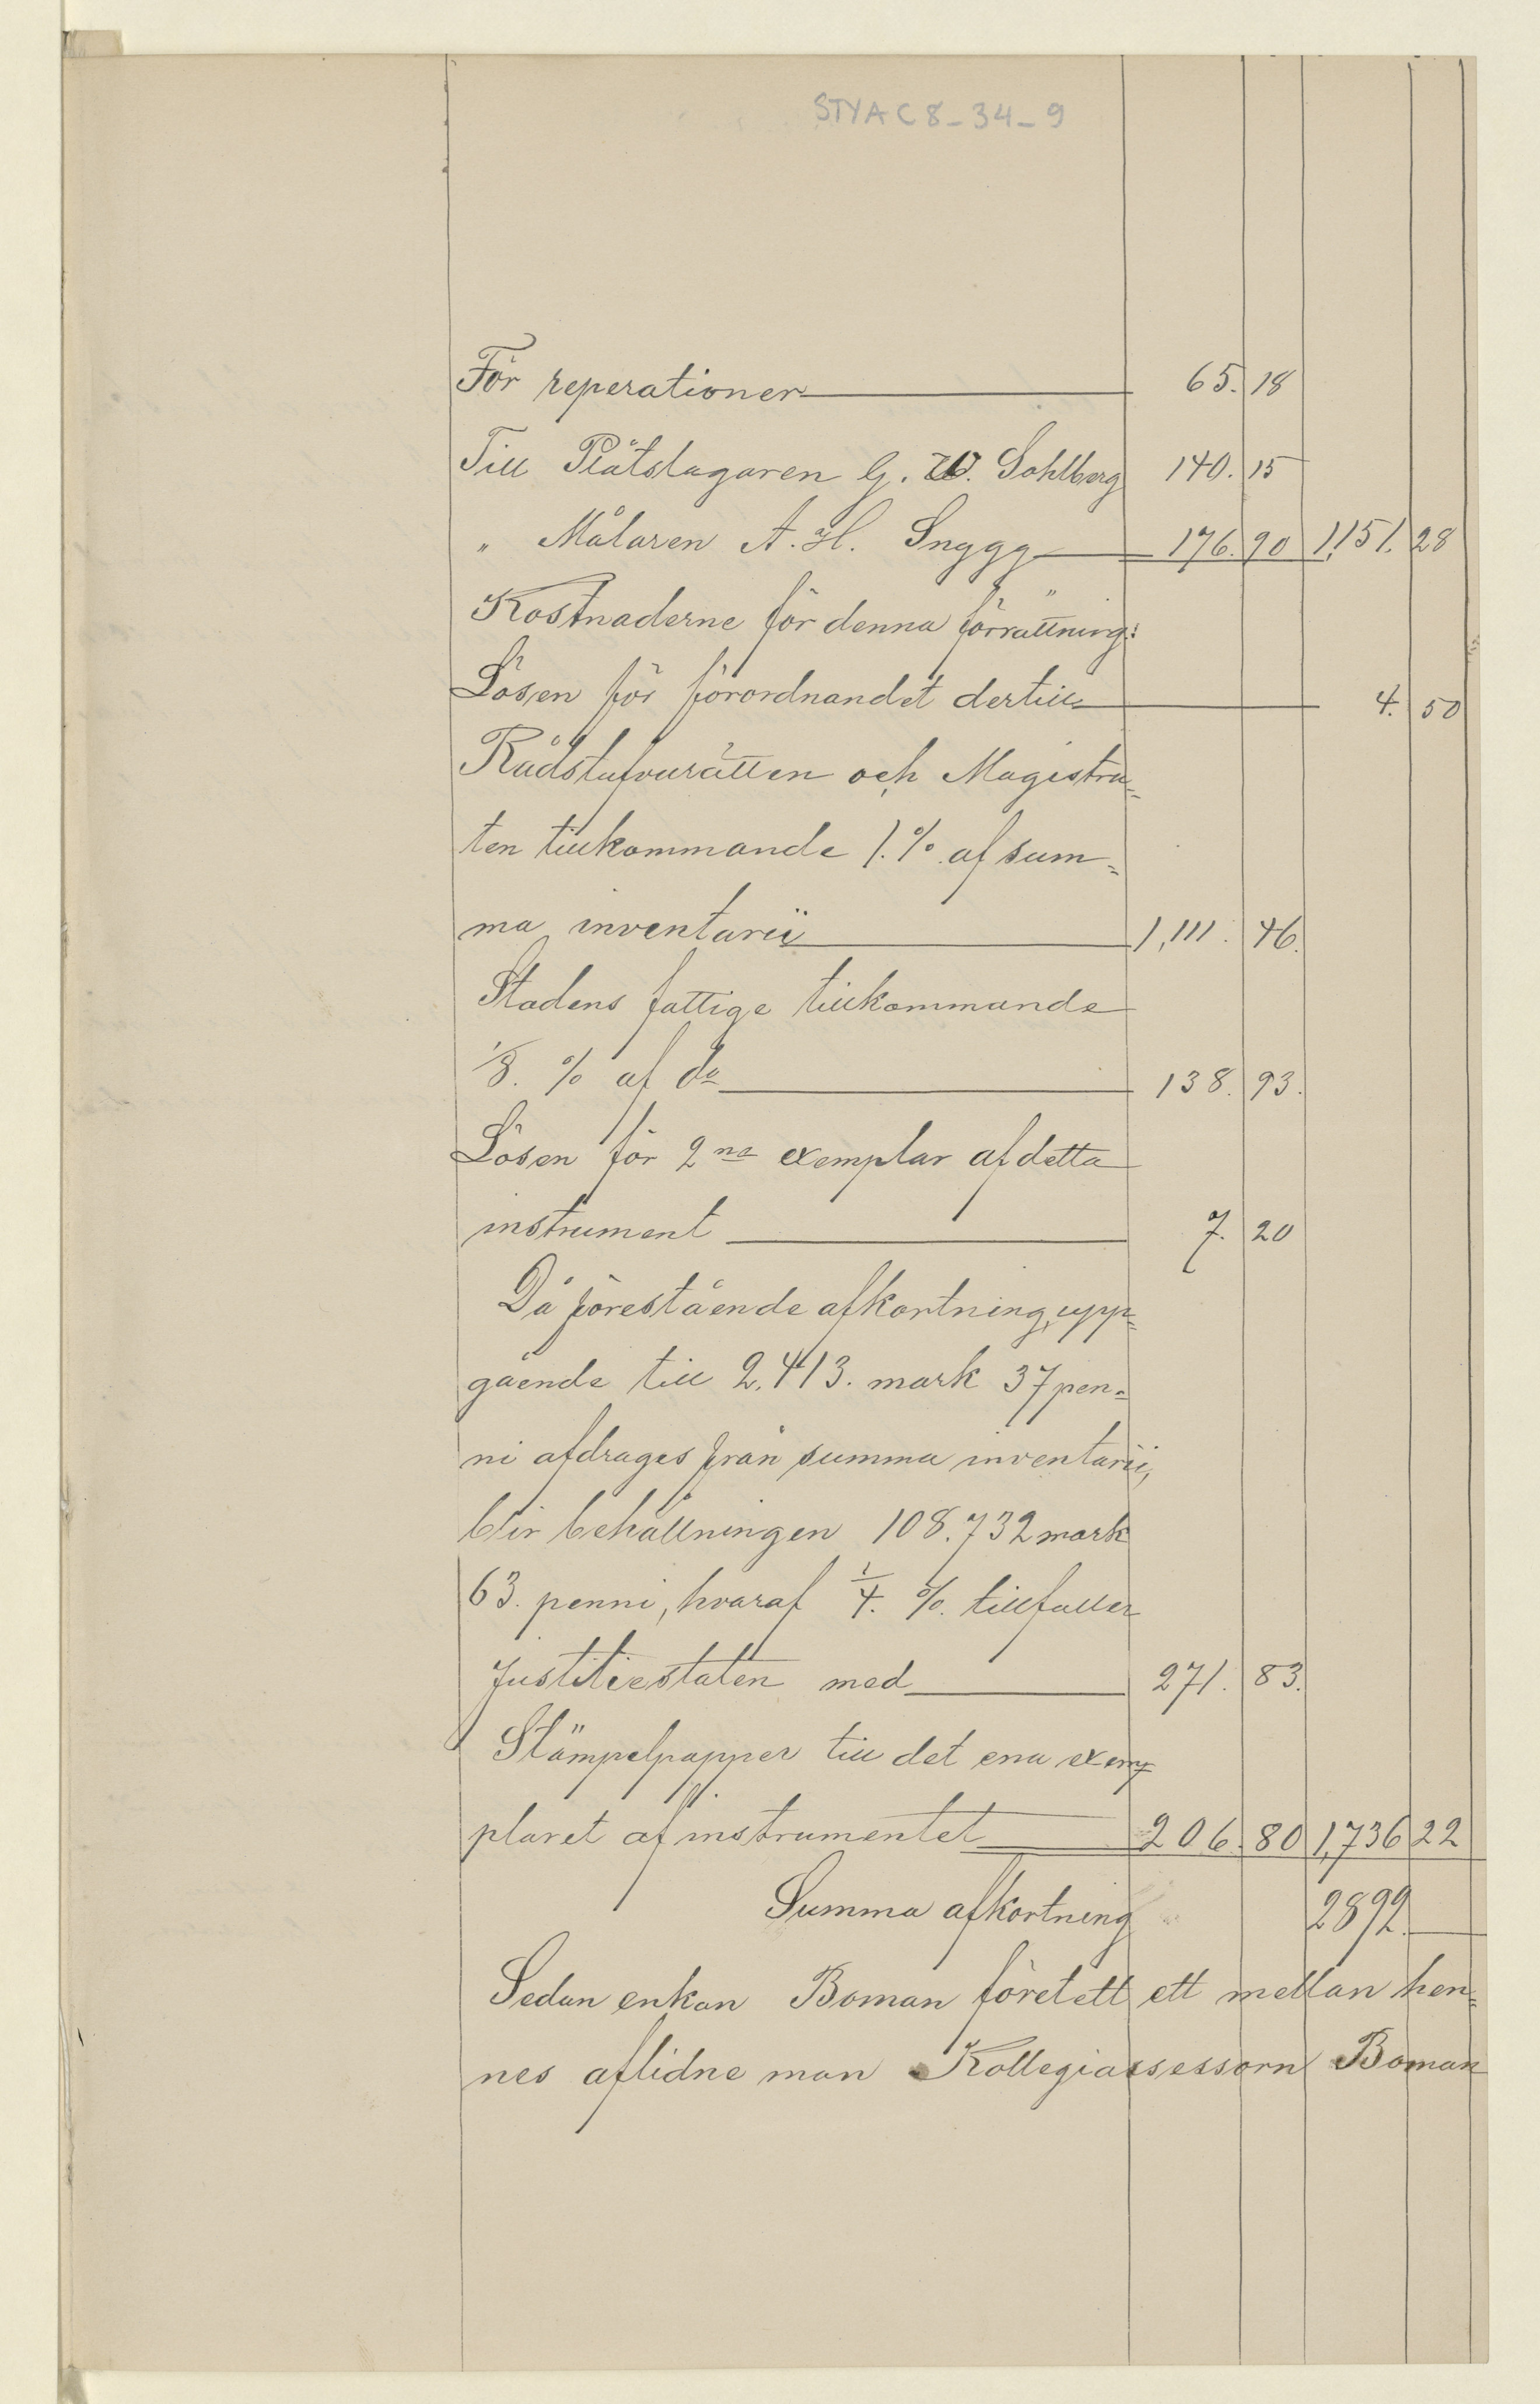 STYA C 8_34_9
För reperationer 65. 18
Till Plåtslagaren G. W. Sohlberg 140. 15
„ Målaren A. H. Snygg 176. 90 1,151. 28
Kostnaderne för denna förrättning:
Lösen för förordnandet dertill 4. 50
Rådstufvurätten och Magistra=
ten tillkommande 1. % af sum=
ma inventarii 1,111. 46.
Stadens fattige tillkommande
1/8. % af do 138. 93.
Lösen för 2ne exemplar af detta
instrument 7. 20
Då förestående afkortning, upp=
gående till 2,413. mark 37 pen=
ni afdrages från summa inventarii,
blir behållningen 108.732 mark
63. penni, hvaraf 1/4. %. tillfaller
Justitiestaten med 271. 83.
Stämpelpapper till det ena exem=
plaret af instrumentet 206. 80 1,736 22
Summa afkortning 2892.—
Sedan enkan Boman företett ett mellan hen=
nes aflidne man Kollegiassessorn Boman